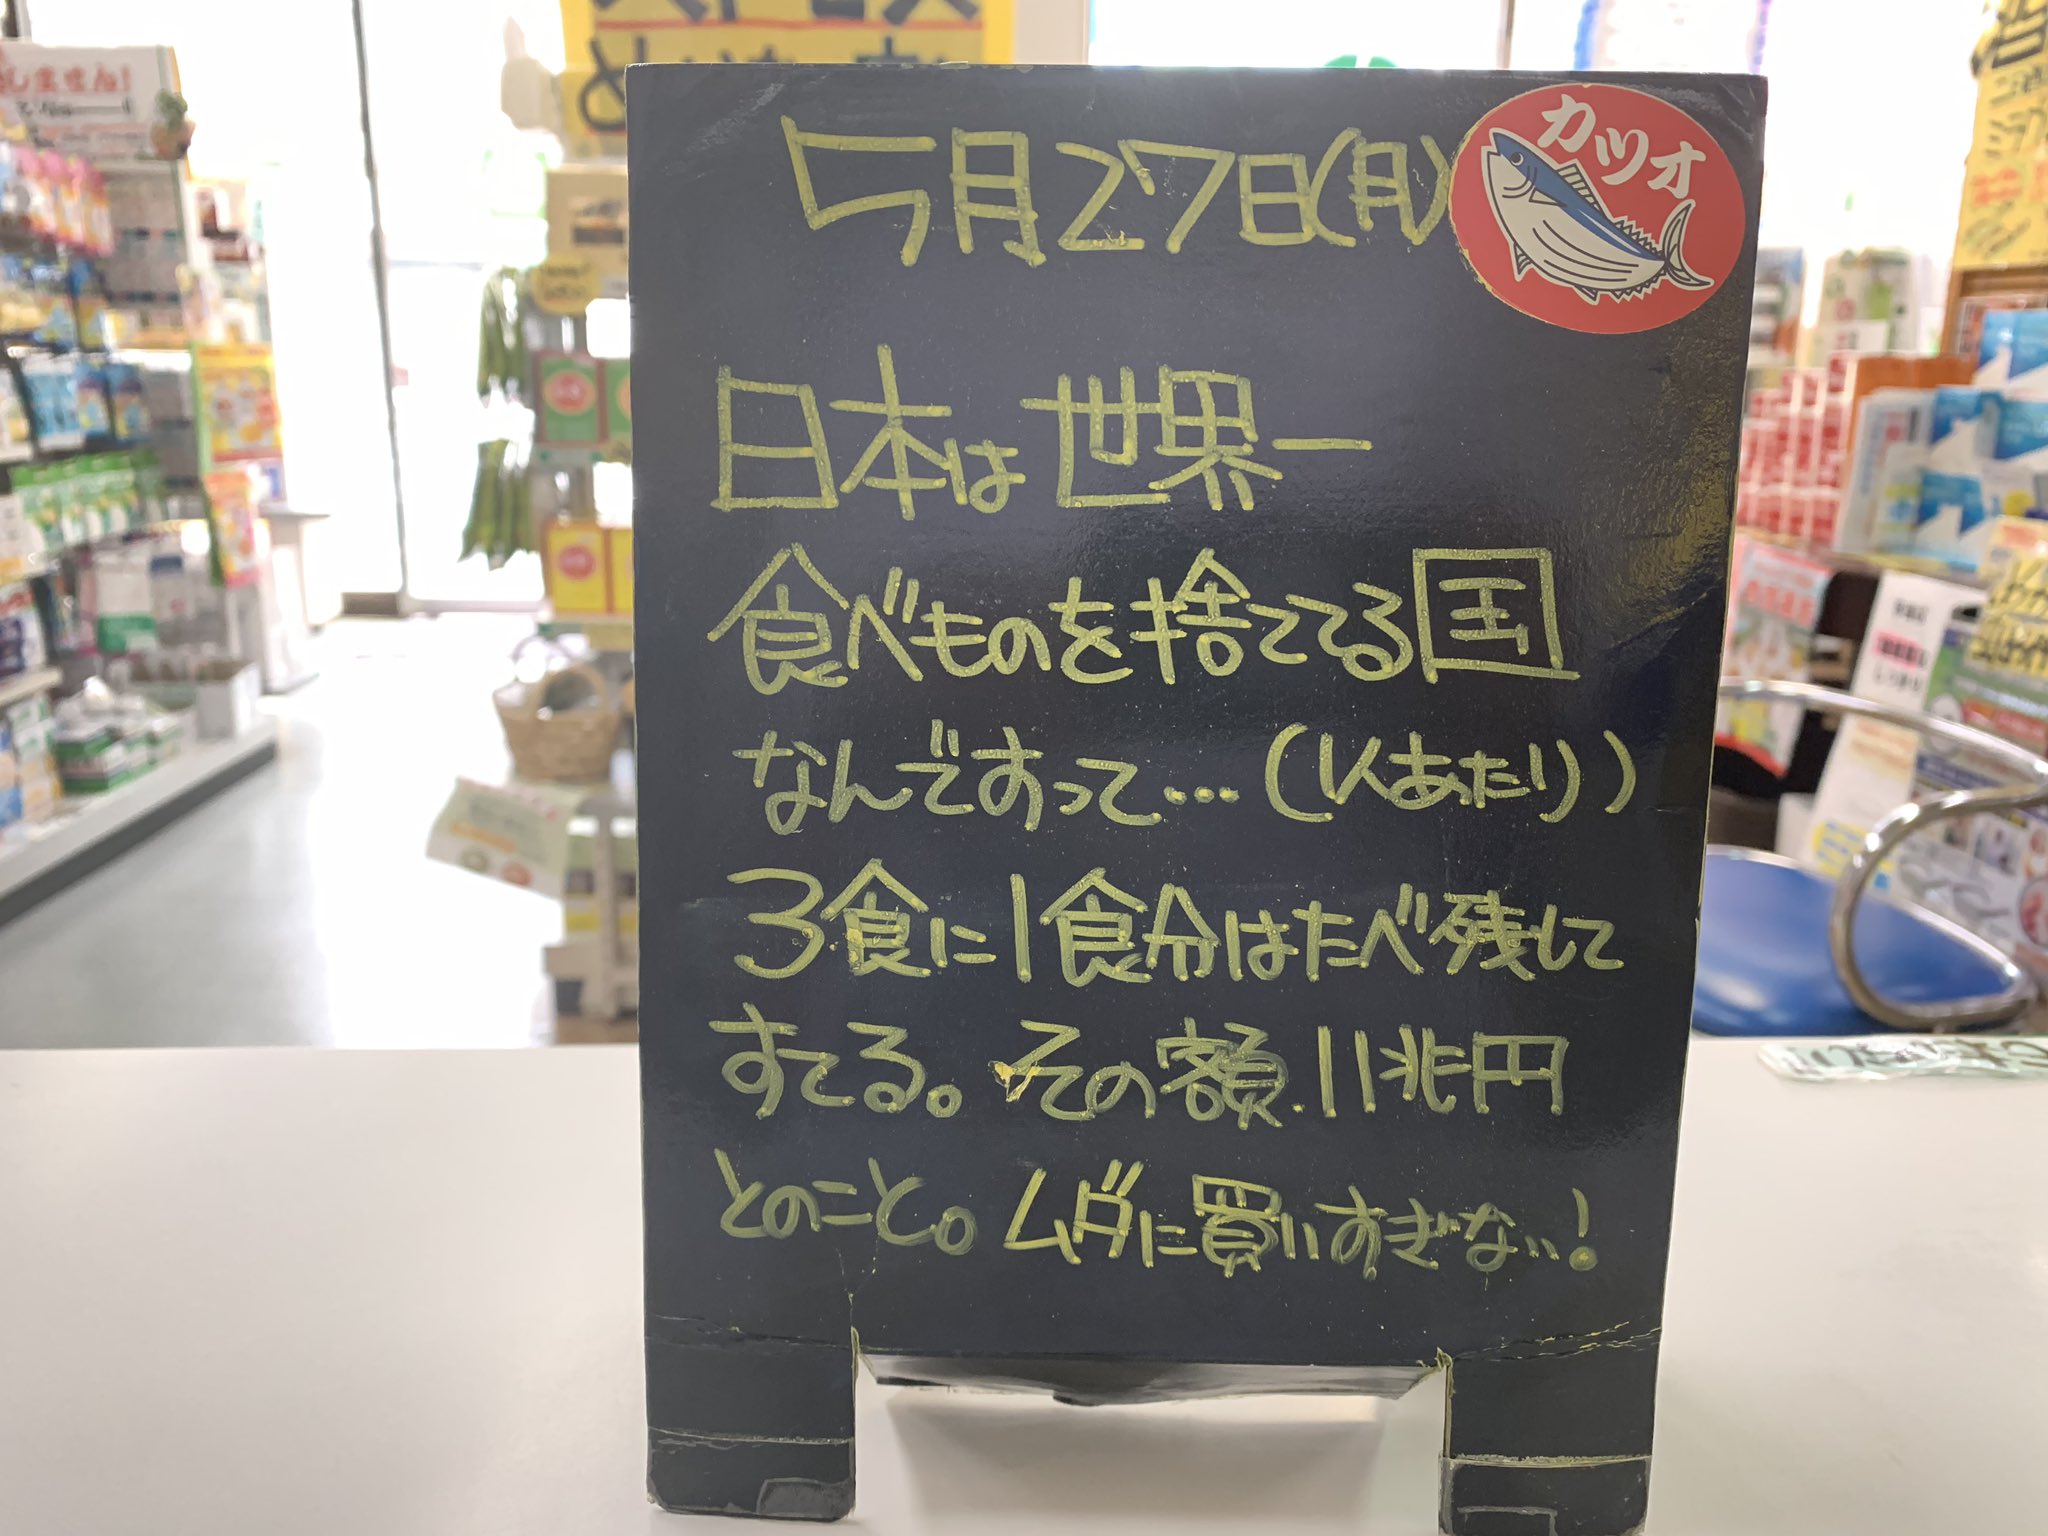 5月27日(月)
カツオ
日本は世界一
食べものを捨ててる国
なんですって…(1人あたり)
3食に1食分はたべ残して
すてる。その額.11兆円
とのこと。ムダに買いすぎない!
しません!